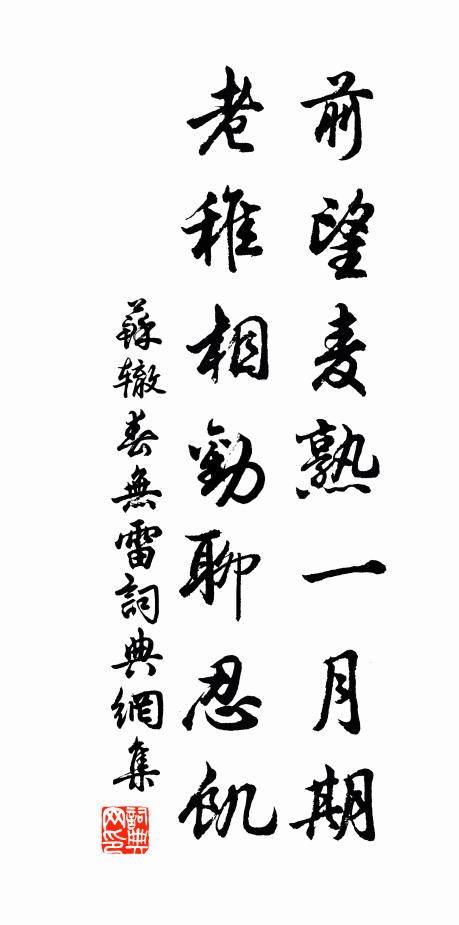 前望麦熟一月期
老稚相勸聊忍飢
蘇辙春無雷詞典網集
詞典網印